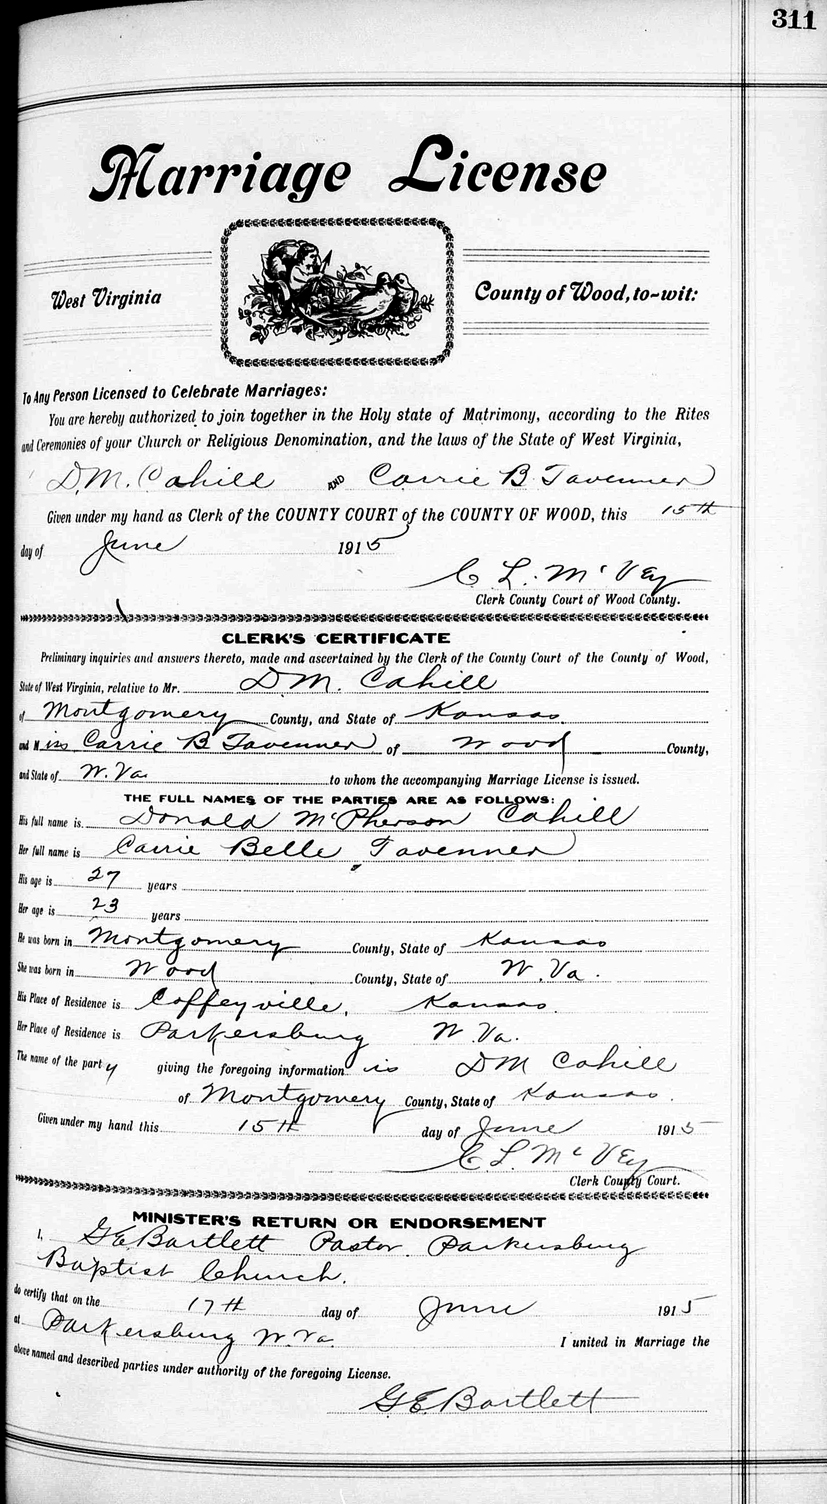 311
Marriage License
West Virginia
County of Wood, to-wit:
To Any Person Licensed to Celebrate Marriages:
You are hereby authorized to join together in the Holy state of Matrimony, according to the Rites
and Ceremonies of your Church or Religious Denomination, and the laws of the State of West Virginia,
D.M. Cahill AND Carrie B Tavenner
Given under my hand as Clerk of the COUNTY COURT of the COUNTY OF WOOD, this 15th
day of June 1915
C. L. McVey
Clerk County Court of Wood County.
CLERK'S CERTIFICATE
Preliminary inquiries and answers thereto, made and ascertained by the Clerk of the County Court of the County of Wood,
State of West Virginia, relative to Mr. D.M. Cahill
of Montgomery County, and State of Kansas.
and Miss Carrie B Tavenner of Wood County,
and State of W. Va. to whom the accompanying Marriage License is issued.
THE FULL NAMES OF THE PARTIES ARE AS FOLLOWS:
His full name is Donald McPherson Cahill
Her full name is Carrie Belle Tavenner
His age is 27 years
Her age is 23 years
He was born in Montgomery County, State of Kansas
She was born in Wood County, State of W. Va.
His Place of Residence is Coffeyville, Kansas.
Her Place of Residence is Parkersburg W. Va.
The name of the party giving the foregoing information is DM Cahill
of Montgomery County, State of Kansas.
Given under my hand this 15th day of June 1915
C. L. McVey
Clerk County Court.
MINISTER'S RETURN OR ENDORSEMENT
I, G E Bartlett Pastor. Parkersburg
Baptist Church.
do certify that on the 17th day of June 1915
at Parkersburg W. Va. I united in Marriage the
above named and described parties under authority of the foregoing License.
G E. Bartlett